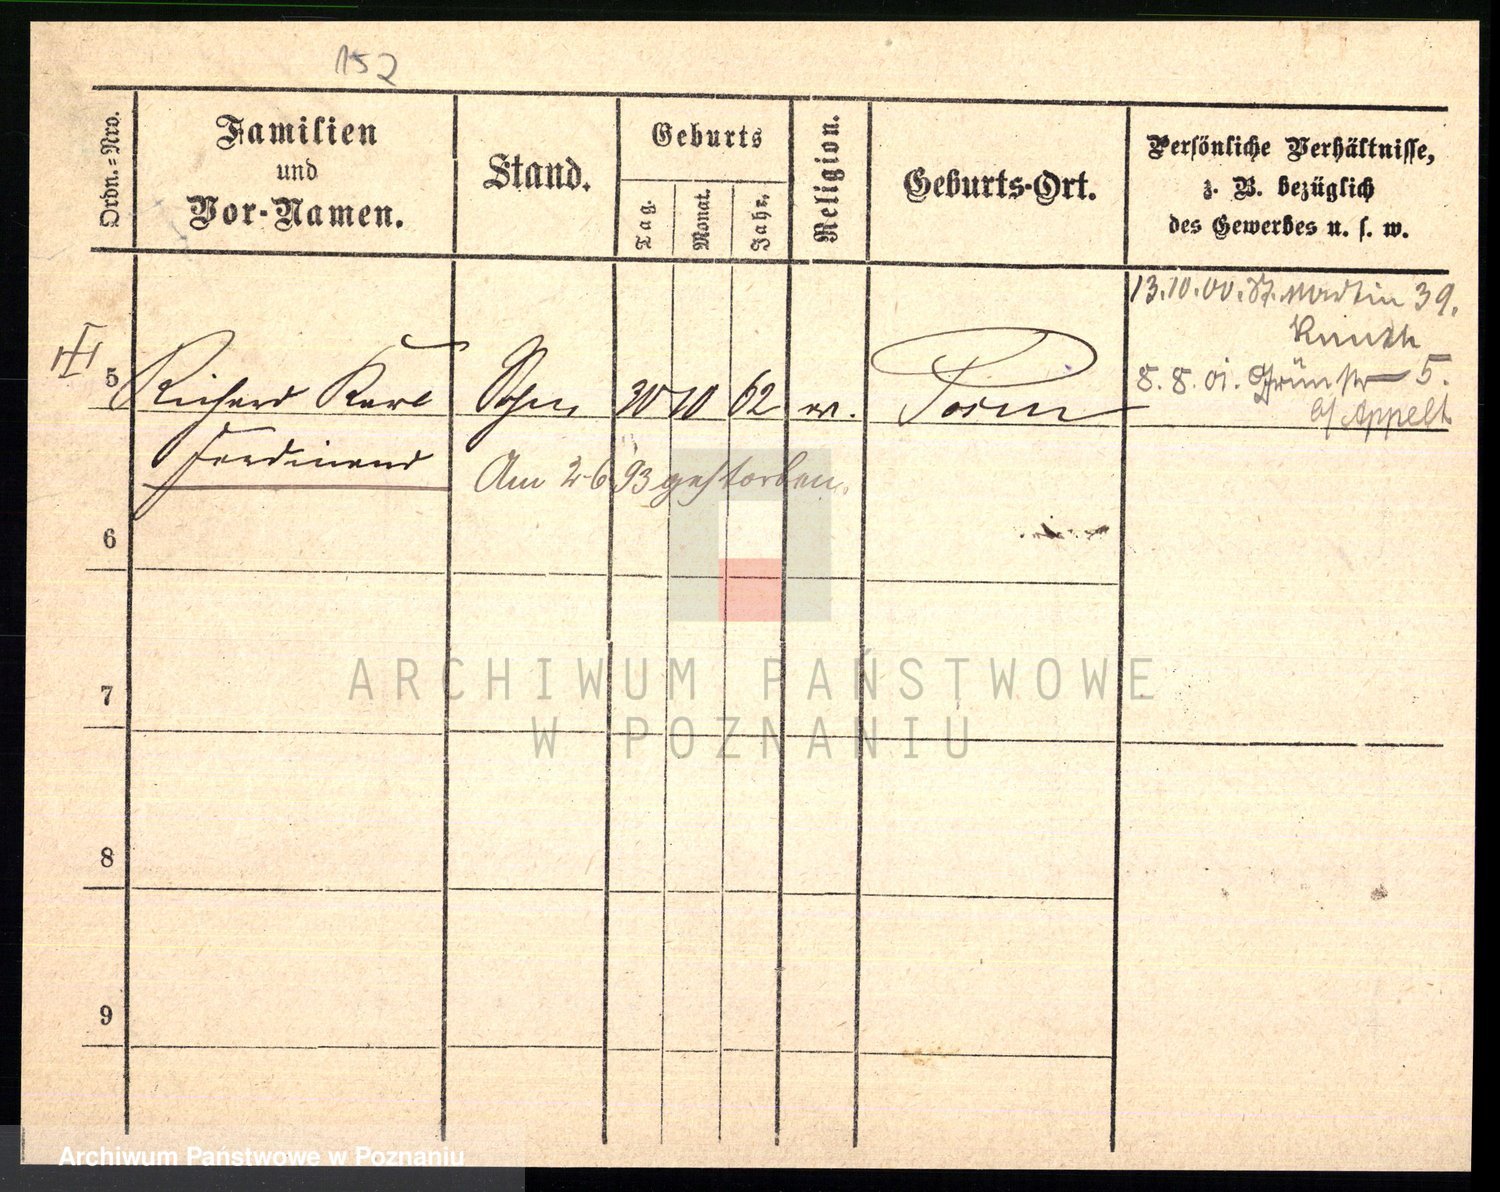 152
Ordn.=Nro.
Familien
und
Vor-Namen.
Stand.
Geburts
Tag.
Monat.
Jahr.
Religion.
Geburts-Ort.
Persönliche Verhältnisse,
z. B. bezüglich
des Gewerbes u. s. w.
13.10.00. St. Martin 39.
8.8.01. Grünstr 5.
b/ Appelt
5 Richard Karl Sohn 30 10 62 ev. Posen
Ferdinand
Am 2 6 93 gestorben.
6
7
8
9
ARCHIWUM PAŃSTWOWE
W POZNANIU
Archiwum Państwowe w Poznaniu